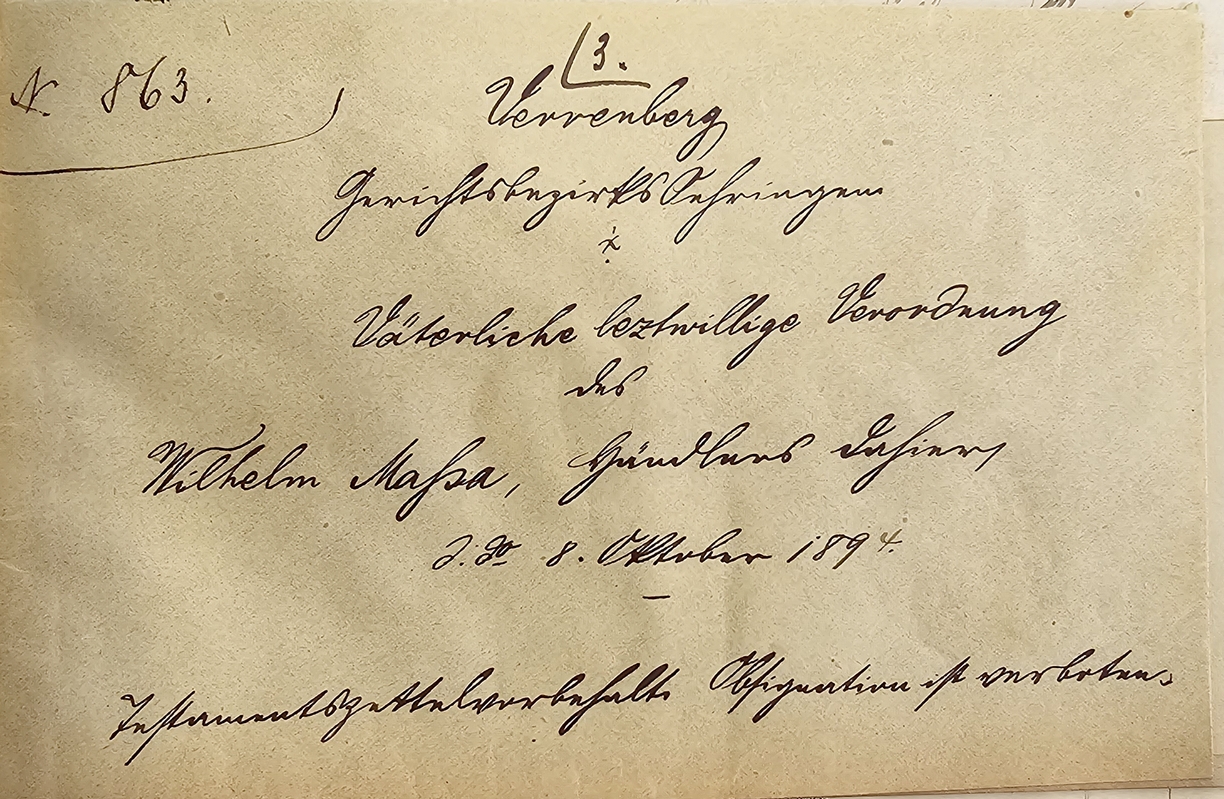 N. 863.
3.
Verrenberg
Gerichtsbezirks Oehringen
Väterliche leztwillige Verordnung
des
Wilhelm Massa, Händlers dahier,
d. do 8. Oktober 1894.
Testamentszettelvorbehalt. Obsignation ist verboten.